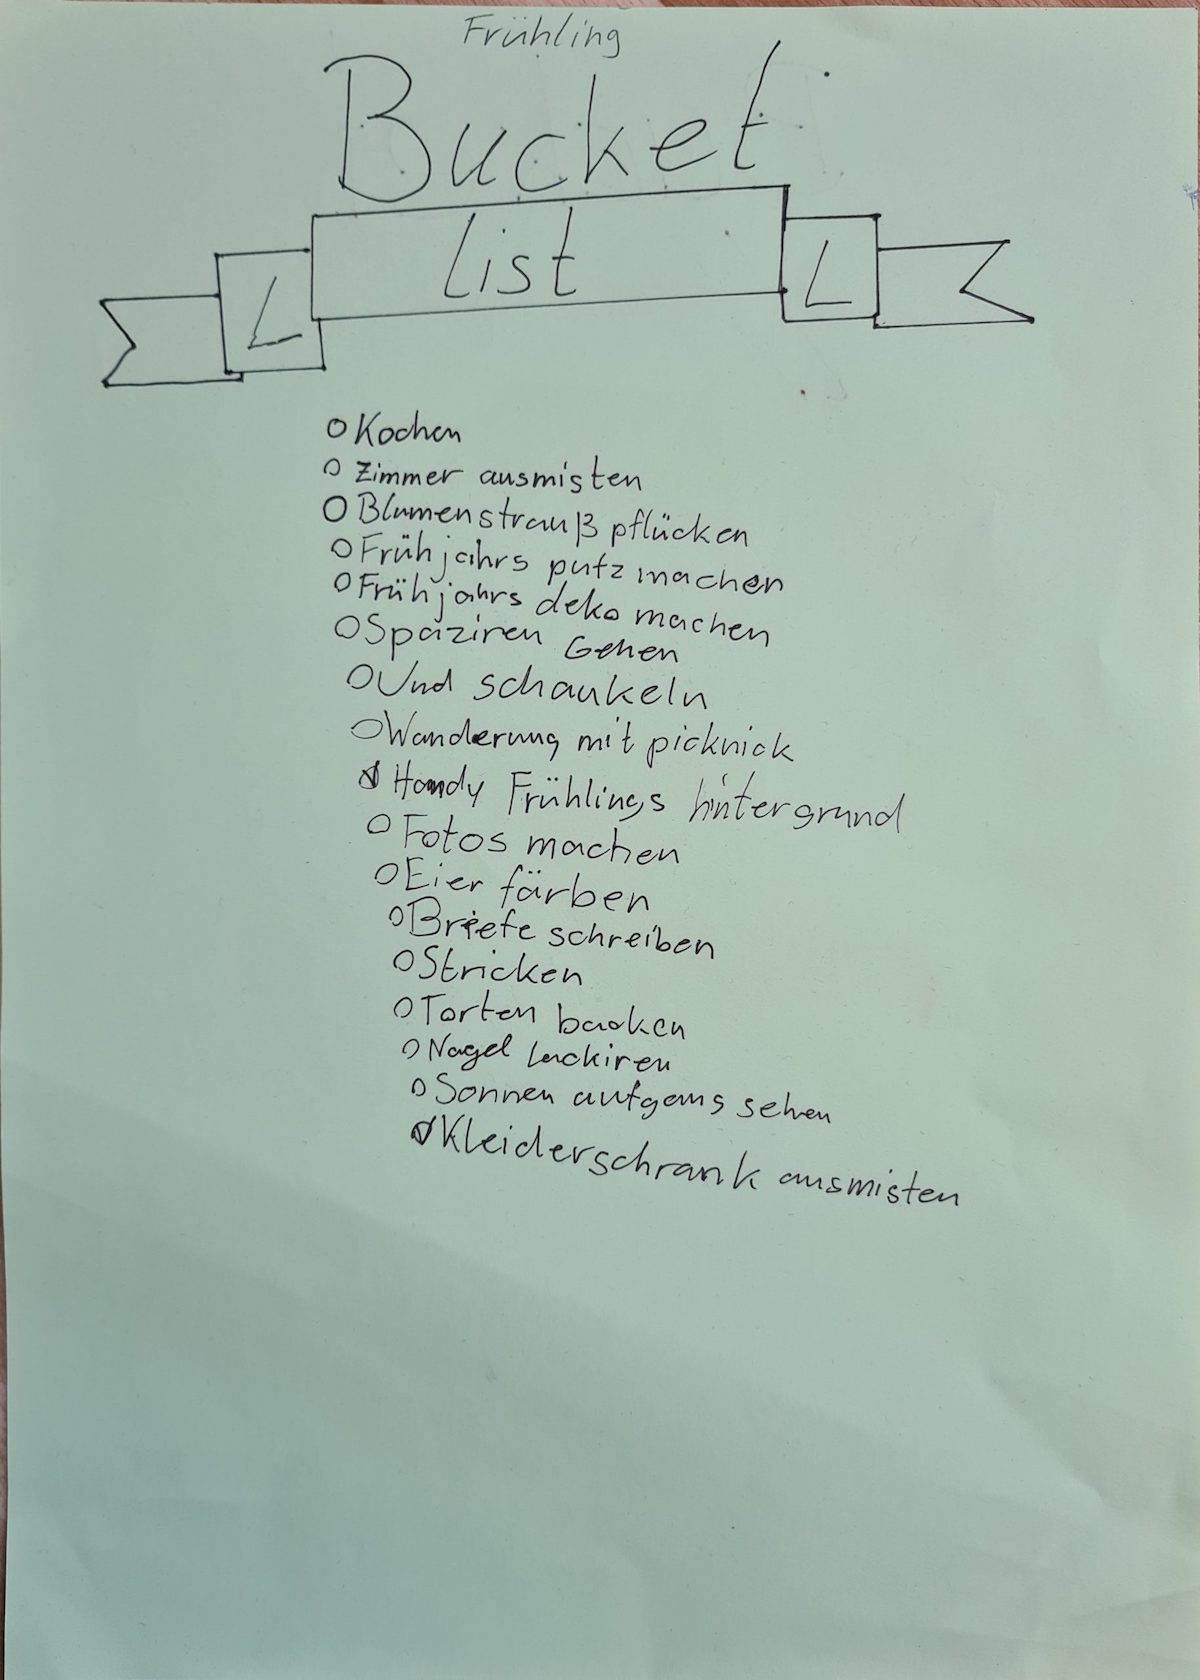 Frühling
Bucket
L list L
Kochen
Zimmer ausmisten
Blumenstrauß pflücken
Frühjahrs putz machen
Frühjahrs deko machen
Spaziren Gehen
Und schaukeln
Wanderung mit picknick
Handy Frühlings hintergrund
Fotos machen
Eier färben
Briefe schreiben
Stricken
Torten backen
Nagel lackiren
Sonnen aufgans sehen
Kleiderschrank ausmisten